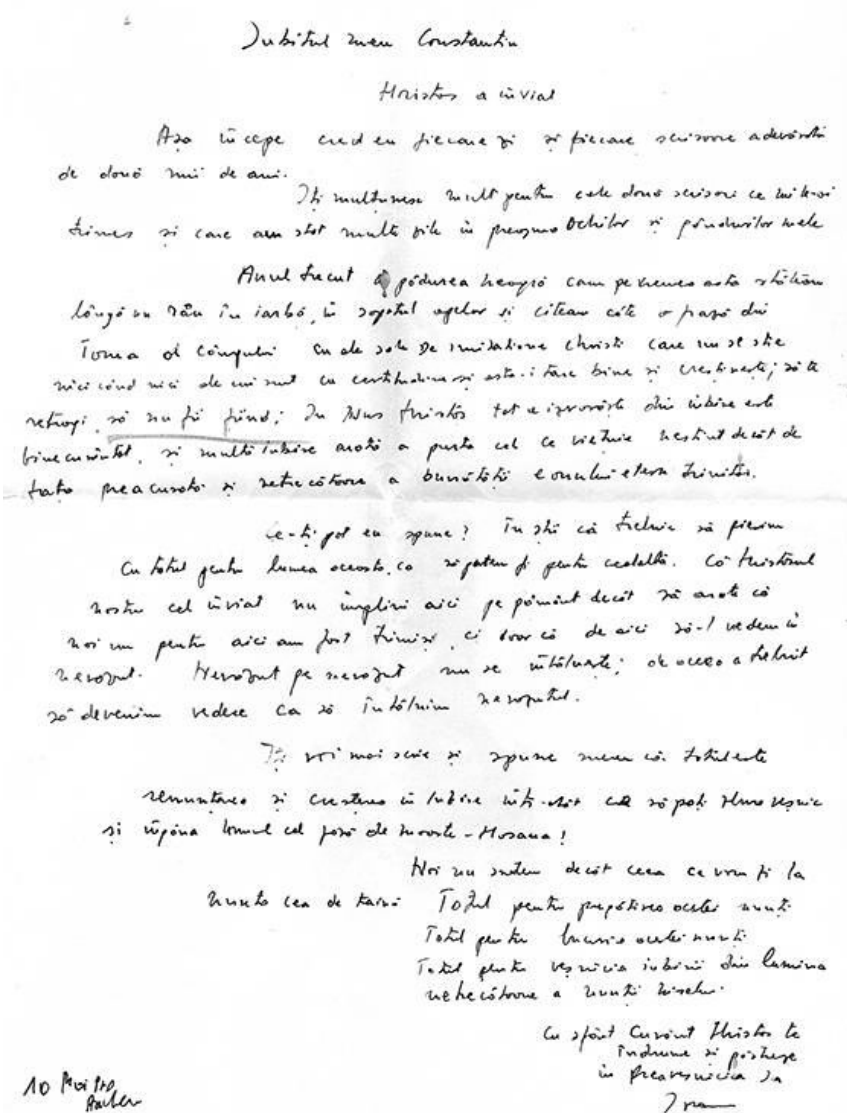 Iubitul meu Constantin
Hristos a înviat
Așa începe cred eu fiecare zi și fiecare scrisoare adevărată
de două mii de ani.
Îți mulțumesc mult pentru cele două scrisori ce mi le-ai
trimes și care au stat multe zile în preajma ochilor și gândurilor mele
Anul trecut pădurea neagră cam pe vremea asta stăteam
lângă un râu în iarbă, în șopotul apelor și citeam câte o frază din
Toma al cu ale sale De imitatione Christi care nu se știe
nici când nici de cu certitudine și asta-i tare bine și creștinește; să te
retragi, să nu fii fiind; În Isus Hristos tot ce izvorăște din iubire este
binecuvântat, și multă iubire arată a purta cel ce viețuie decât de
preacurată și a bunătății Trinităti.
Ce-ți pot eu spune? Tu știi că trebuie să pierim
cu totul pentru lumea aceasta, ca să putem fi pentru cealaltă. Că Hristosul
nostru cel înviat nu împlini aici pe pământ decât să arate că
noi nu pentru aici am fost trimiși, ci doar că de aici să-l vedem în
nevăzut. Nevăzut pe nevăzut nu se întâlnește; de aceea a trebuit
să devenim vedere ca să întâlnim nevăzutul.
Îți voi mai scrie și spune mereu că totul este
renunțarea și creșterea în iubire într-atât că să poți veșnic
și îngâna imnul cel fără de moarte - Hosana!
Noi nu suntem decât ceea ce vom fi la
nunta cea de taină Totul pentru pregătirea acestei nunți
Totul pentru bucuria acestei nunți
Totul pentru veșnicia iubirii din lumina
netrecătoare a nunții
Cu sfânt Cuvânt Hristos te
îndrume și
în preaveșnicia Sa
10 Mai